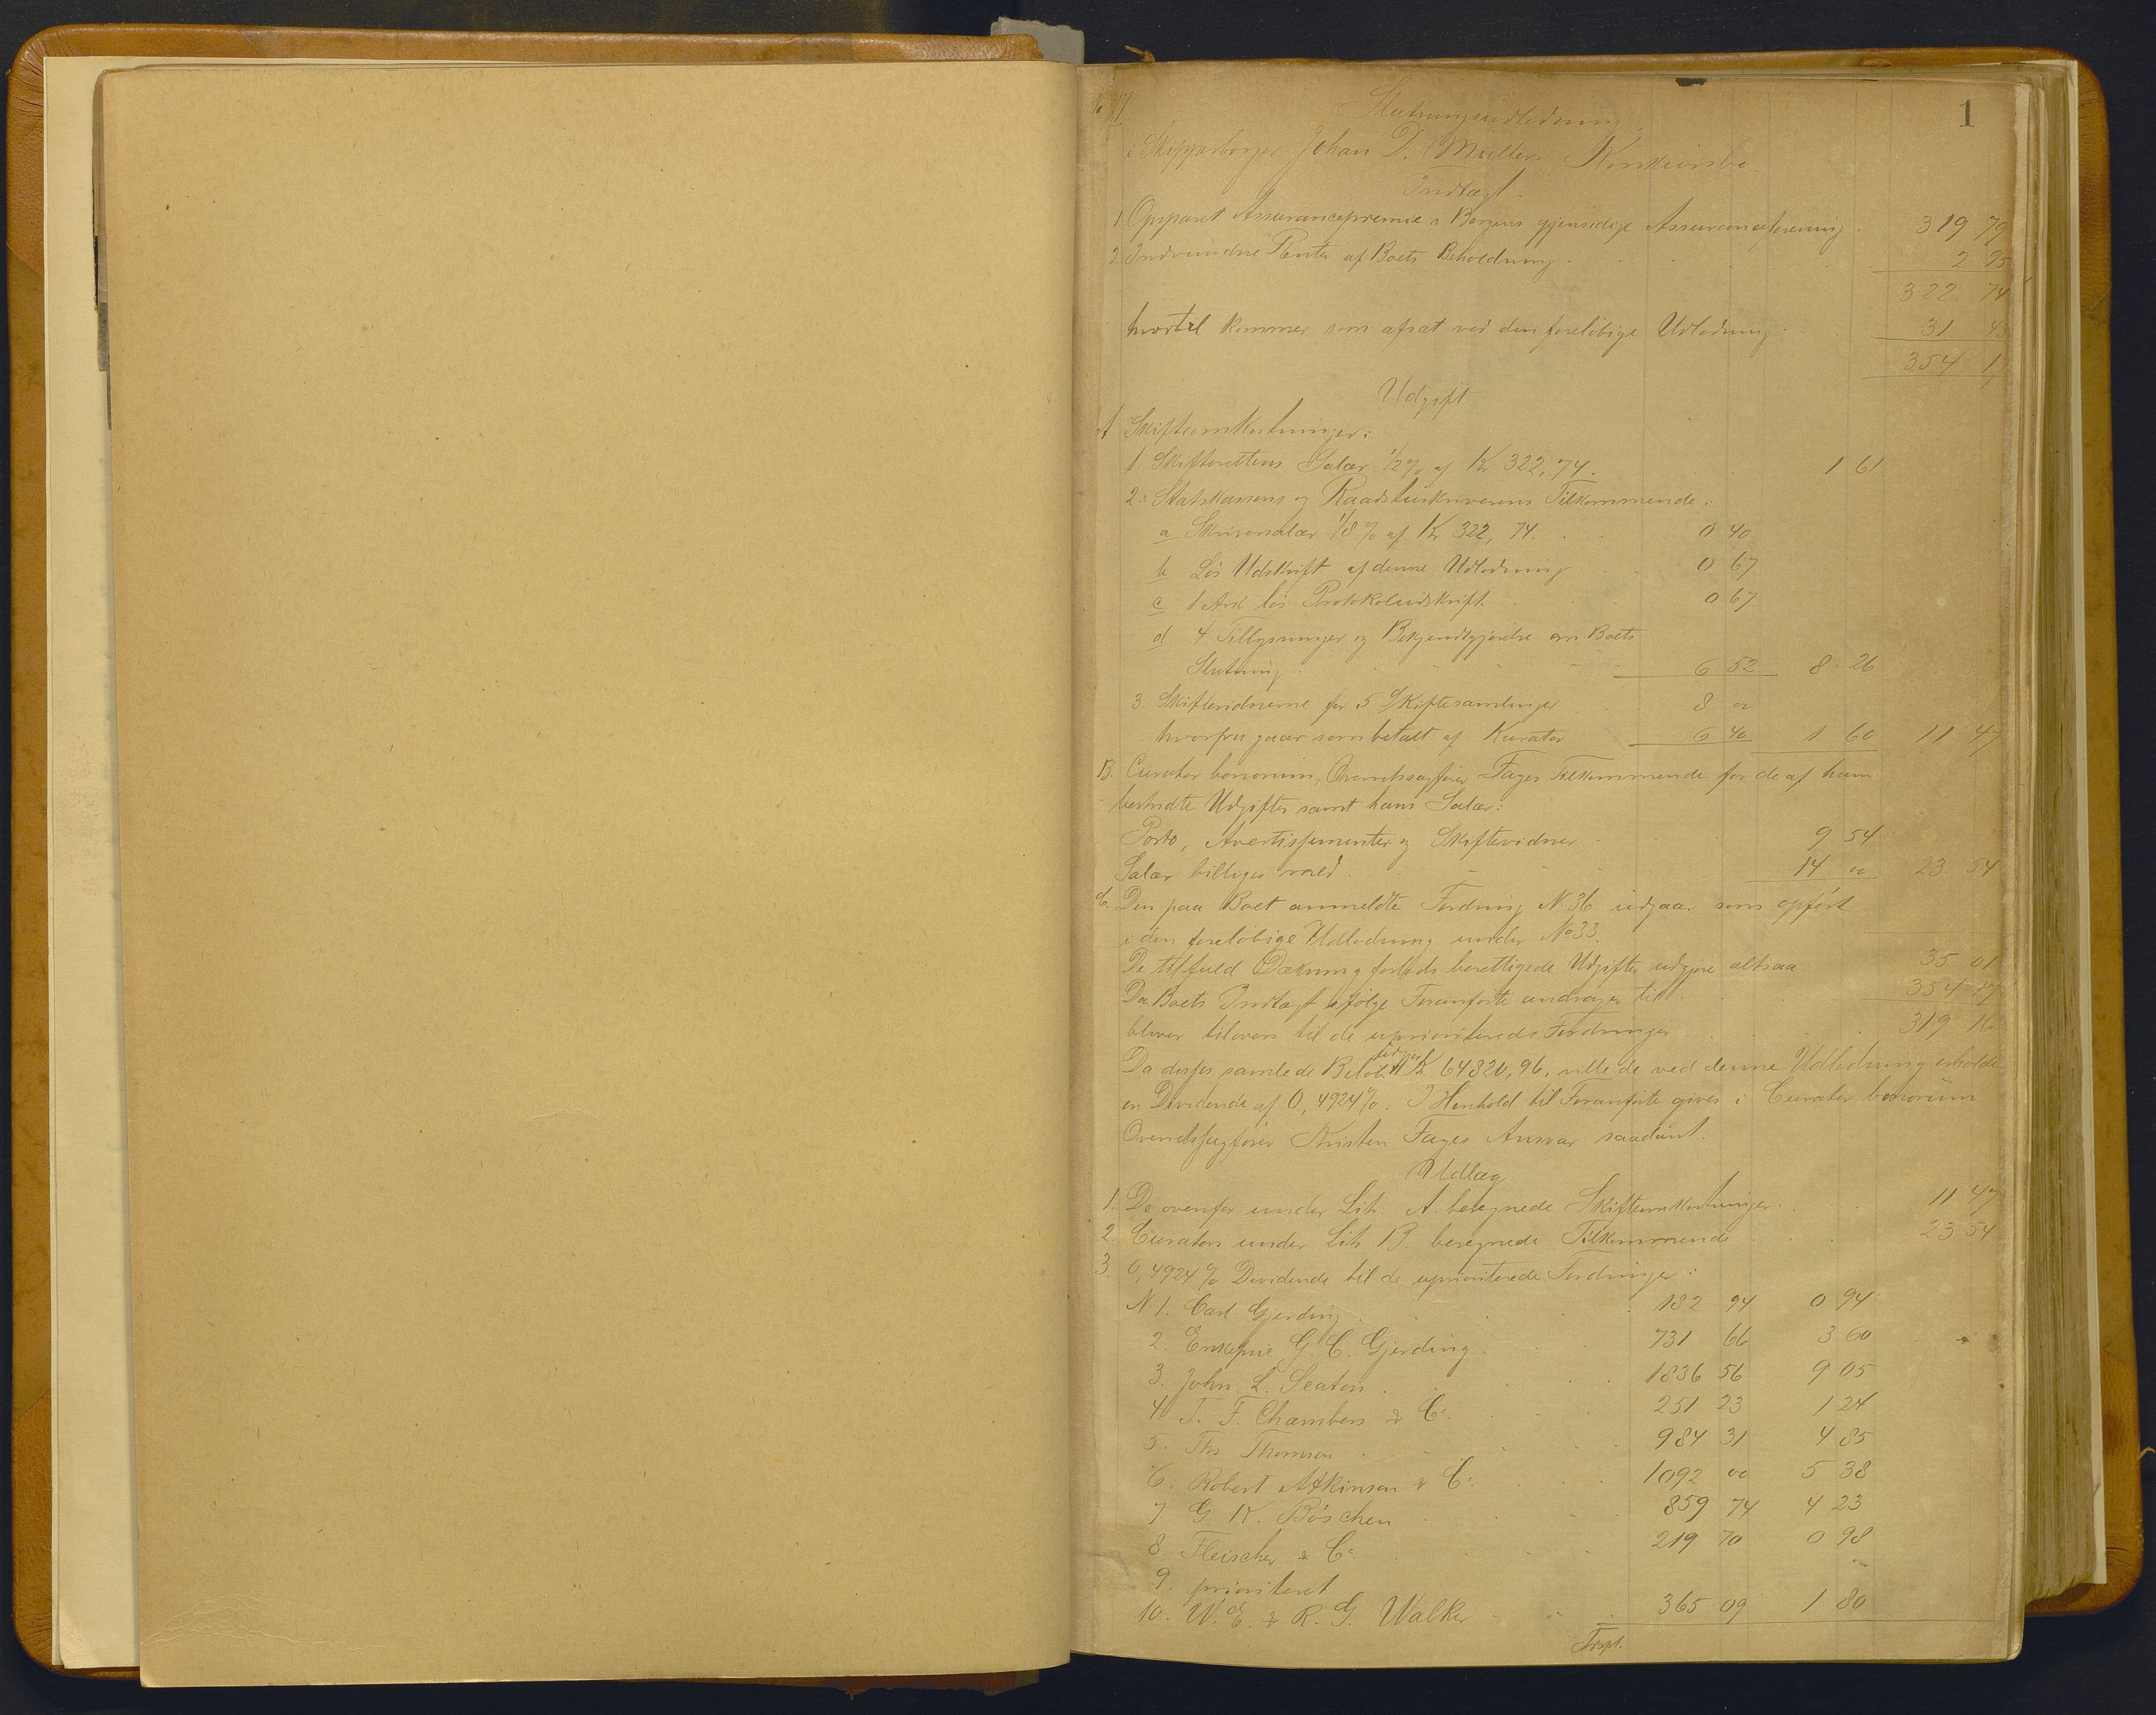 1
Slutningsudlodning
i Skipperborger Johan D. Müllers Konkursbo.
Indtægt.
1 Opsparet Assurancepremie i Bergens gjensidige Assuranceforening. 319 79
2. Indvundne Renter af Boets Beholdning 2 95
322 74
hvortil kommer som afsat ved den foreløbige Udlodning 31 43
354 1
Udgift
A Skifteomkostninger:
1. Skifterettens Salær ½% af Kr 322,74. 1 61
2. Statskassens og Raadstueskriverens Tilkommende:
a Skriversalær 1/8% af Kr 322,74. 0 40
b Løs Udskrift af denne Udlodning 0 67
c 1 Ark løs Protokoludskrift 0 67
d 4 Tillysninger og Bekjendtgjørelse om Boets
Slutning 6 52 8 26
3. Skiftevidnerne for 5 Skiftesamlinger 8 00
hvorfra gaar som betalt af Kurator 6 40 1 60 11 47
B. Curator bonorum, Overretssagfører Fages Tilkommende for de af ham
bestridte Udgifter samt hans Salær:
Porto, Avertissementer og Skiftevidner 9 54
Salær billiges med 14 00 23 54
C. Den paa Boet anmeldte Fordring N 36 udgaar som opført
i den foreløbige Udlodning under No 33.
De til fuld Dækning forlods berettigede Udgifter udgjøre altsaa 35 01
Da Boets Indtægt ifølge Foranførte andrager til 354 17
bliver tilovers til de uprioriterede Fordringer 319 16
Da disses samlede Beløb udgjør Kr 64820,96, ville de ved denne Udlodning erholde
en Dividende af 0,4924%. I Henhold til Foranførte gives i Curator bonorum
Overretssagfører Kristen Fages Ansvar saadant
Udlæg
1. De ovenfor under Litr. A. beregnede Skifteomkostninger. 11 47
2. Curators under Litr B. beregnede Tilkommende 23 54
3. 0,4924% Dividende til de uprioriterede Fordringer:
N 1. Carl Gjerding 182 94 0 94
2. Enkefrue G. C. Gjerding 731 66 3 60
3. John. L. Seaton 1836 56 9 05
4. T. F. Chambers & Co. 251 23 1 24
5. Ths Thomsen 984 31 4 85
6. Robert Atkinson & Co. 1092 00 5 38
7. G. K. Böschen 859 74 4 23
8. Fleischer & Co. 219 70 0 98
9. prioriteret
10. W. E. & R. G. Walker 365 09 1 80
Trspt.